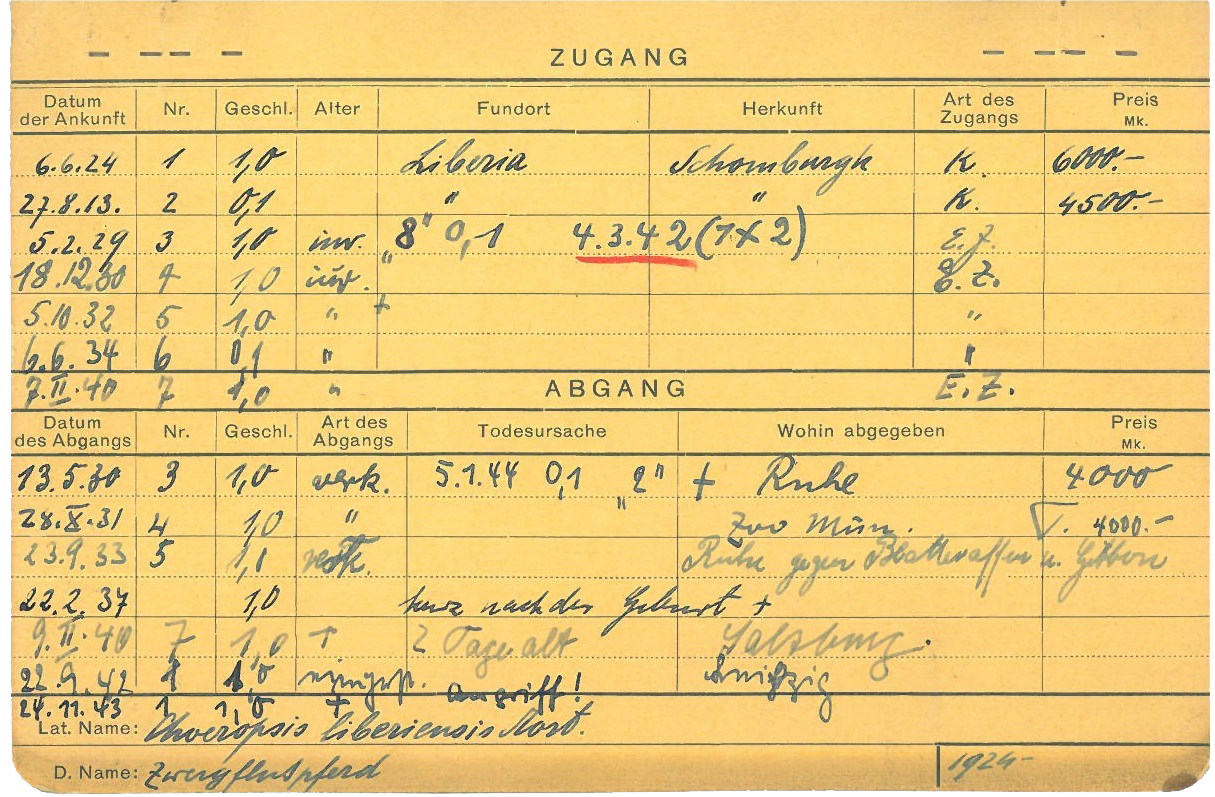 ZUGANG
Datum der Ankunft Nr. Geschl. Alter Fundort Herkunft Art des Zugangs Preis Mk.
6.6.24 1 1,0 Liberia Schomburgk K. 6000.-
27.8.13. 2 0,1 " " K. 4500.-
5.2.29 3 1,0 juv. "8" 0,1 4.3.42 (1x2) E.Z.
18.12.30 4 1,0 juv. E.Z.
5.10.32 5 1,0 " + "
6.6.34 6 0,1 " "
7.II.40 7 1,0 " E.Z.
ABGANG
Datum des Abgangs Nr. Geschl. Art des Abgangs Todesursache Wohin abgegeben Preis Mk.
13.5.30 3 1,0 verk. 5.1.44 0,1 "2" + Ruhe 4000
28.X.31 4 1,0 " Zoo Mün. T. 4000.-
23.9.33 5 1,1 Ruhe gegen u. Gibbon
22.2.37 1,0 kurz nach der Geburt +
9.II.40 7 1,0 + 2 Tage alt Salzburg.
22.9.42 1 1,0 Leipzig
24.11.43 1 1,0 + Angriff!
Lat. Name: Choeropsis liberiensis Mort.
D. Name: Zwergflußpferd 1924-